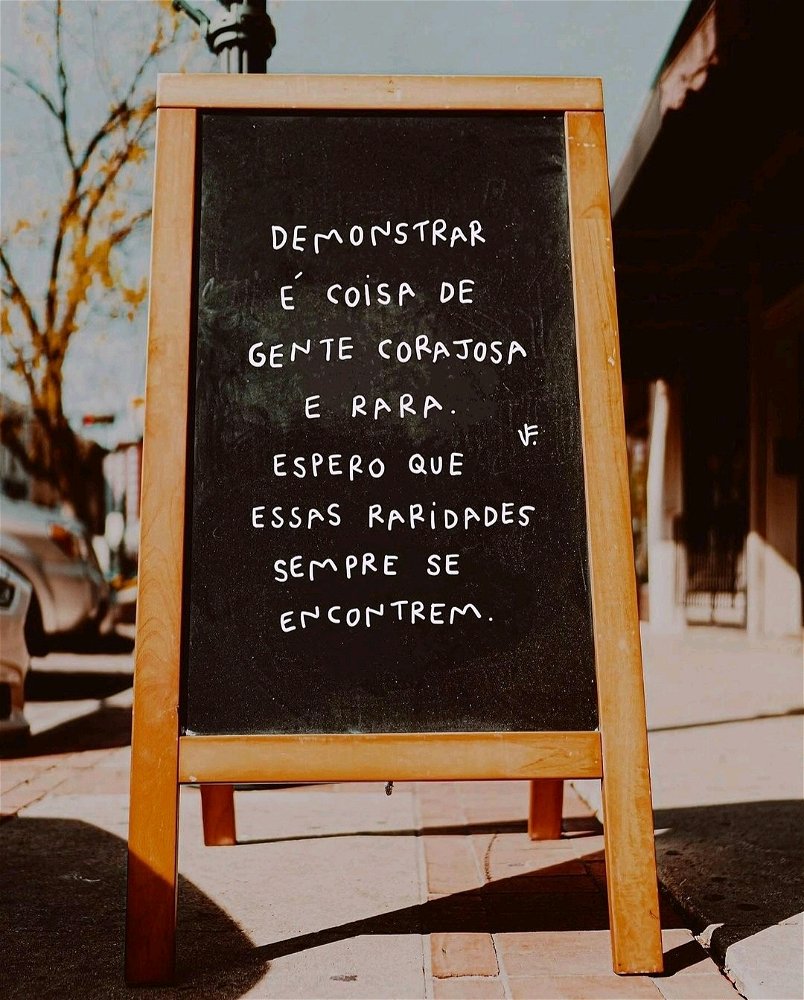 DEMONSTRAR
É COISA DE
GENTE CORAJOSA
E RARA.
VF.
ESPERO QUE
ESSAS RARIDADES
SEMPRE SE
ENCONTREM.